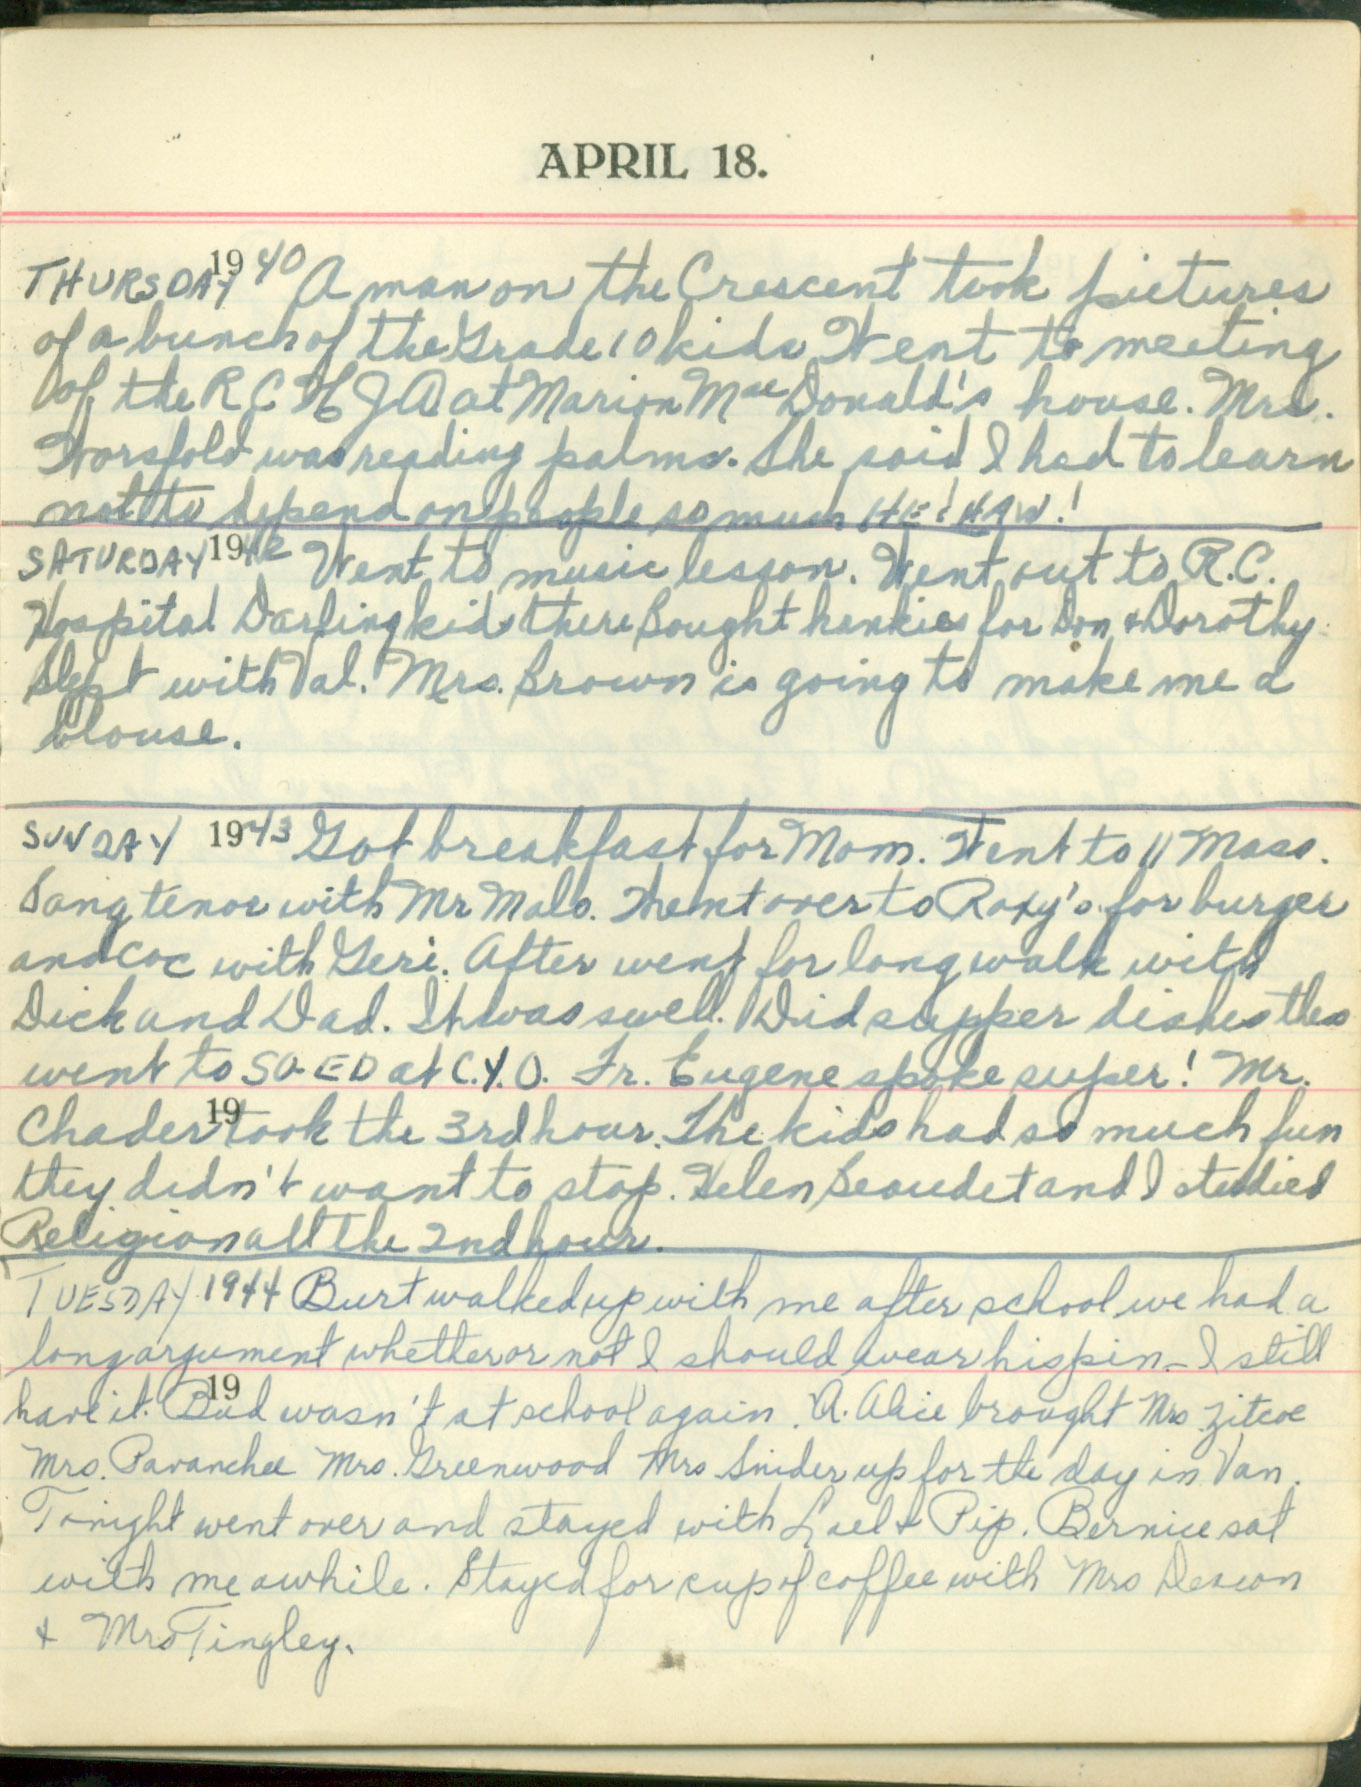 APRIL 18.
THURSDAY 1940 A man on the Crescent took pictures
of a bunch of the Grade 10 kids Went to meeting
of the R C H J A at Marion MacDonald's house. Mrs.
Horsfold was reading palms. She said I had to learn
not to depend on people so much HE! HAW!
SATURDAY 1942 Went to music lesson. Went out to R.C.
Hospital Darling kids there Bought hankies for Don & Dorothy
Slept with Val. Mrs. Brown is going to make me a
blouse.
SUNDAY 1943 Got breakfast for Mom. Went to 11 Mass.
Sang tenor with Mr Malo. Went over to Roxy's for burger
and coc with Geri. After went for long walk with
Dick and Dad. It was swell. Did supper dishes then
went to SO-ED at C.Y.O. Fr. Eugene spoke super! Mr.
19
Chader took the 3rd hour. The kids had so much fun
they didn't want to stop. Helen Beaudet and I studied
Religion all the 2nd hour.
TUESDAY 1944 Burt walked up with me after school we had a
long argument whether or not I should wear his pin - I still
19
have it. Bud wasn't at school again. A. Alice brought Mrs
Mrs. Mrs. Greenwood Mrs Snider up for the day in Van.
Tonight went over and stayed with Lael & Pip. Bernice sat
with me awhile. Stayed for cup of coffee with Mrs
& Mrs Tingley.